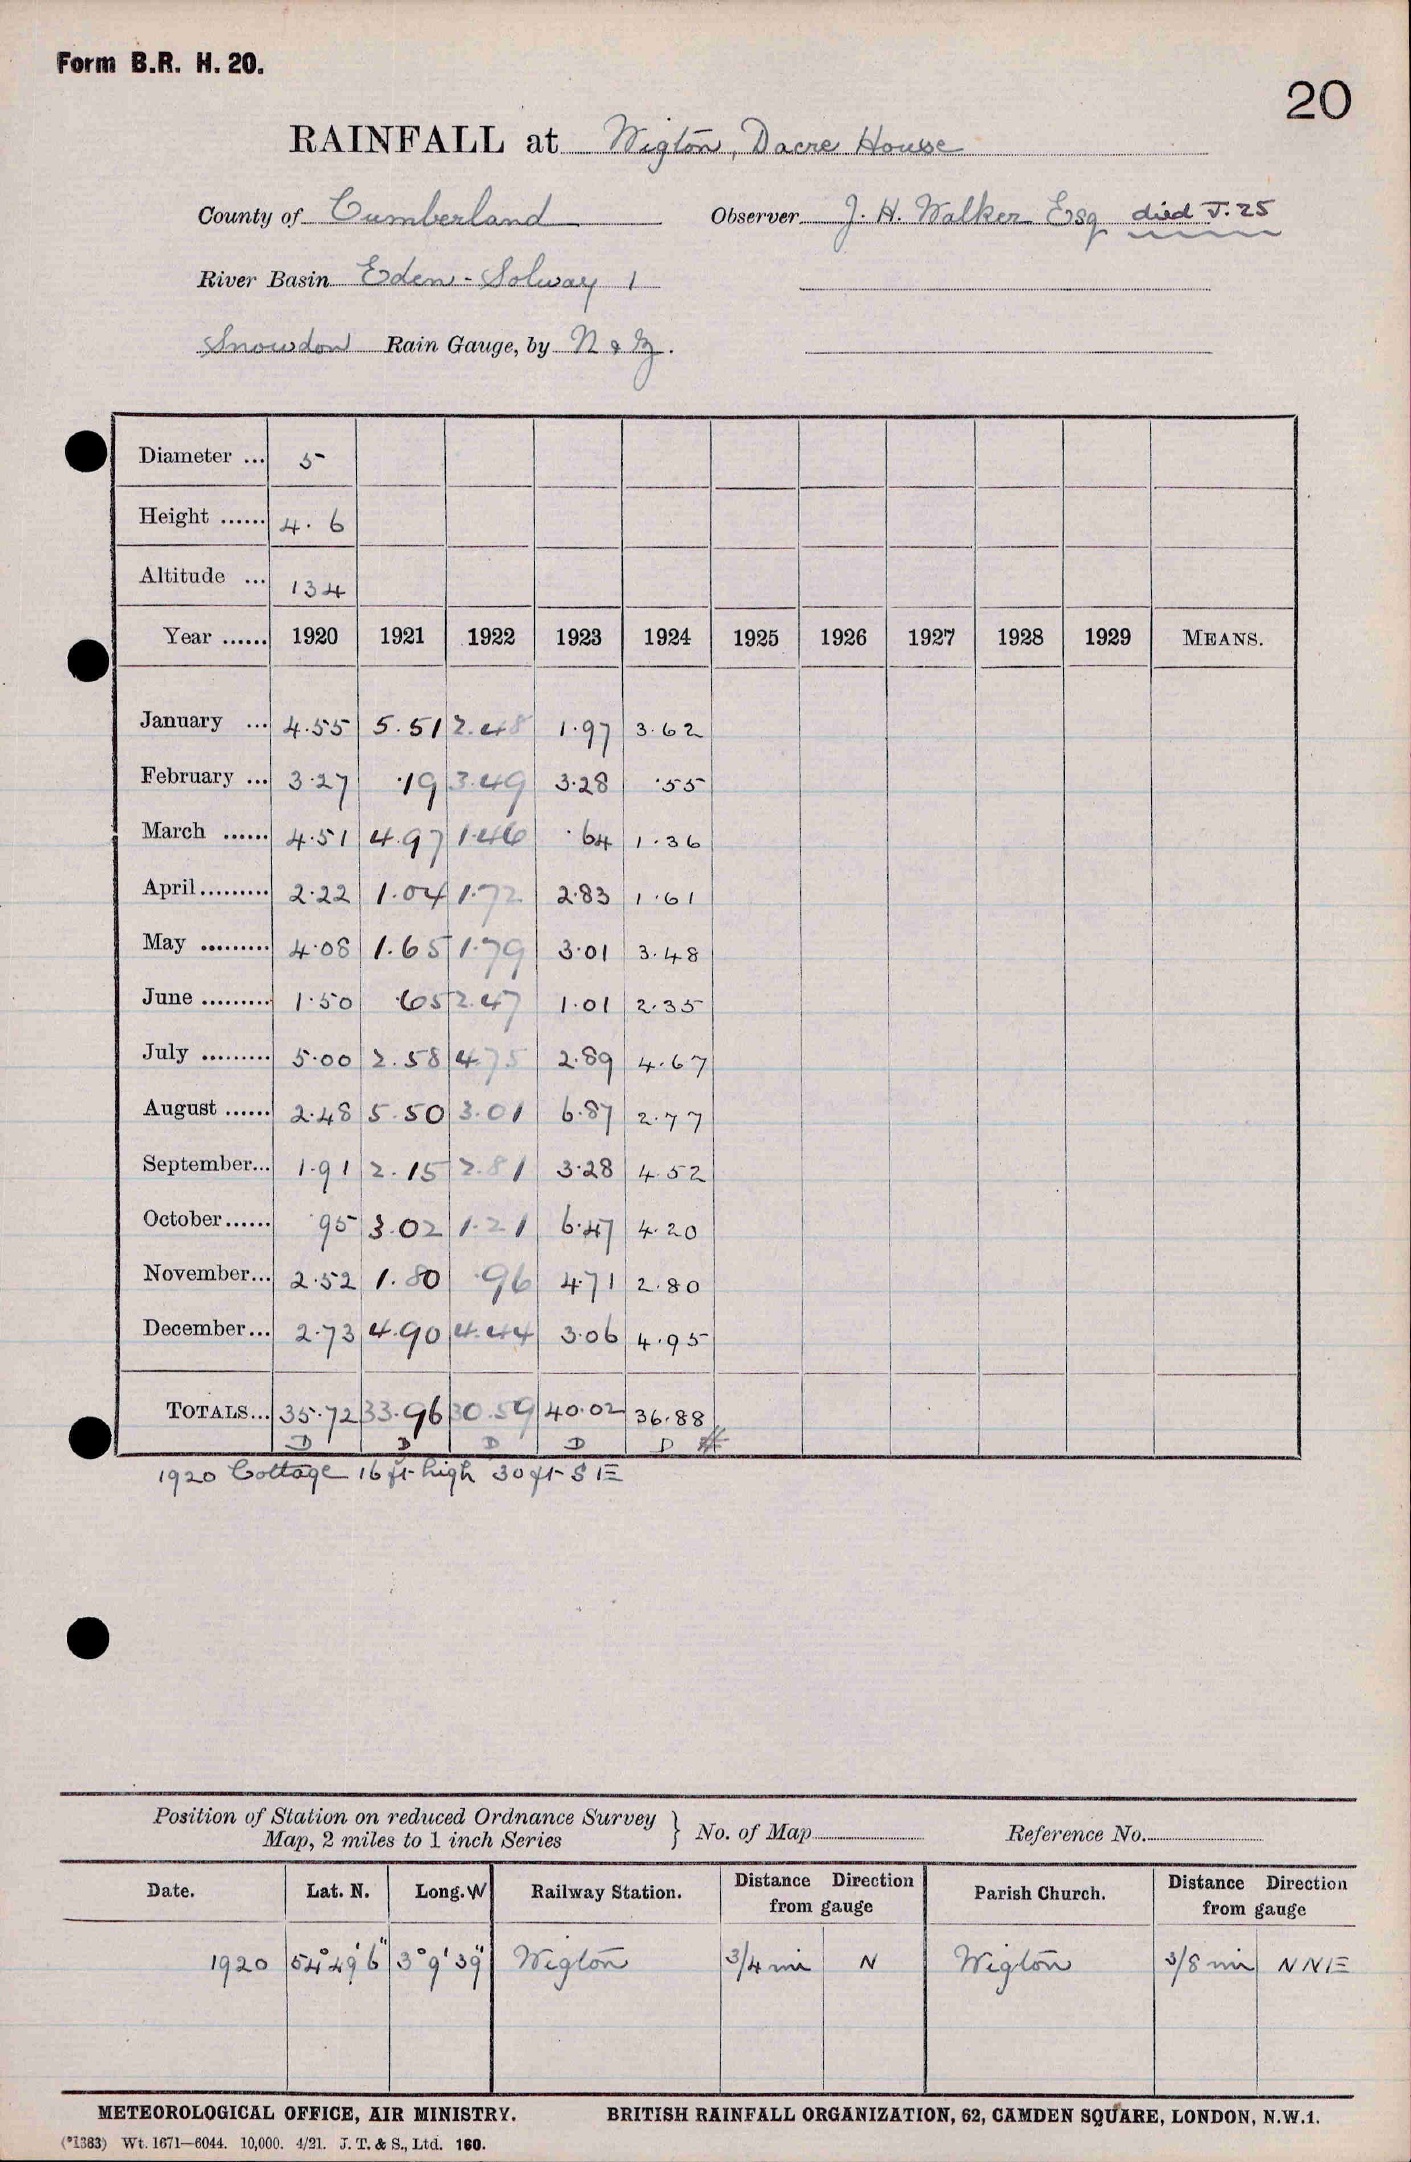 Form B.R. H. 20.
20
RAINFALL at Wigton, Dacre House
County of Cumberland Observer J. H. Walker Esq died J. 25
River Basin Eden - Solway 1
Snowdon Rain Gauge, by N & Z.
Diameter ... 5
Height ...... 4. 6
Altitude ... 134
Year ...... 1920 1921 1922 1923 1924 1925 1926 1927 1928 1929 MEANS.
January ... 4.55 5.51 2.48 1.97 3.62
February ... 3.27 .19 3.49 3.28 .55
March ...... 4.51 4.97 1.46 .64 1.36
April......... 2.22 1.04 1.72 2.83 1.61
May ......... 4.08 1.65 1.79 3.01 3.48
June ......... 1.50 .65 2.47 1.01 2.35
July ......... 5.00 2.58 4.75 2.89 4.67
August ...... 2.48 5.50 3.01 6.87 2.77
September... 1.91 2.15 2.81 3.28 4.52
October...... .95 3.02 1.21 6.47 4.20
November... 2.52 1.80 .96 4.71 2.80
December... 2.73 4.90 4.44 3.06 4.95
TOTALS... 35.72 33.96 30.59 40.02 36.88
D D D D D #
1920 Cottage 16 ft high 30 ft S E
Position of Station on reduced Ordnance Survey
Map, 2 miles to 1 inch Series } No. of Map Reference No.
Date. Lat. N. Long. W Railway Station. Distance Direction from gauge Parish Church. Distance Direction from gauge
1920 54° 49' 6" 3° 9' 39" Wigton 3/4 mi N Wigton 3/8 mi NNE
METEOROLOGICAL OFFICE, AIR MINISTRY. BRITISH RAINFALL ORGANIZATION, 62, CAMDEN SQUARE, LONDON, N.W.1.
(*1383) Wt. 1671—6044. 10,000. 4/21. J. T. & S., Ltd. 160.